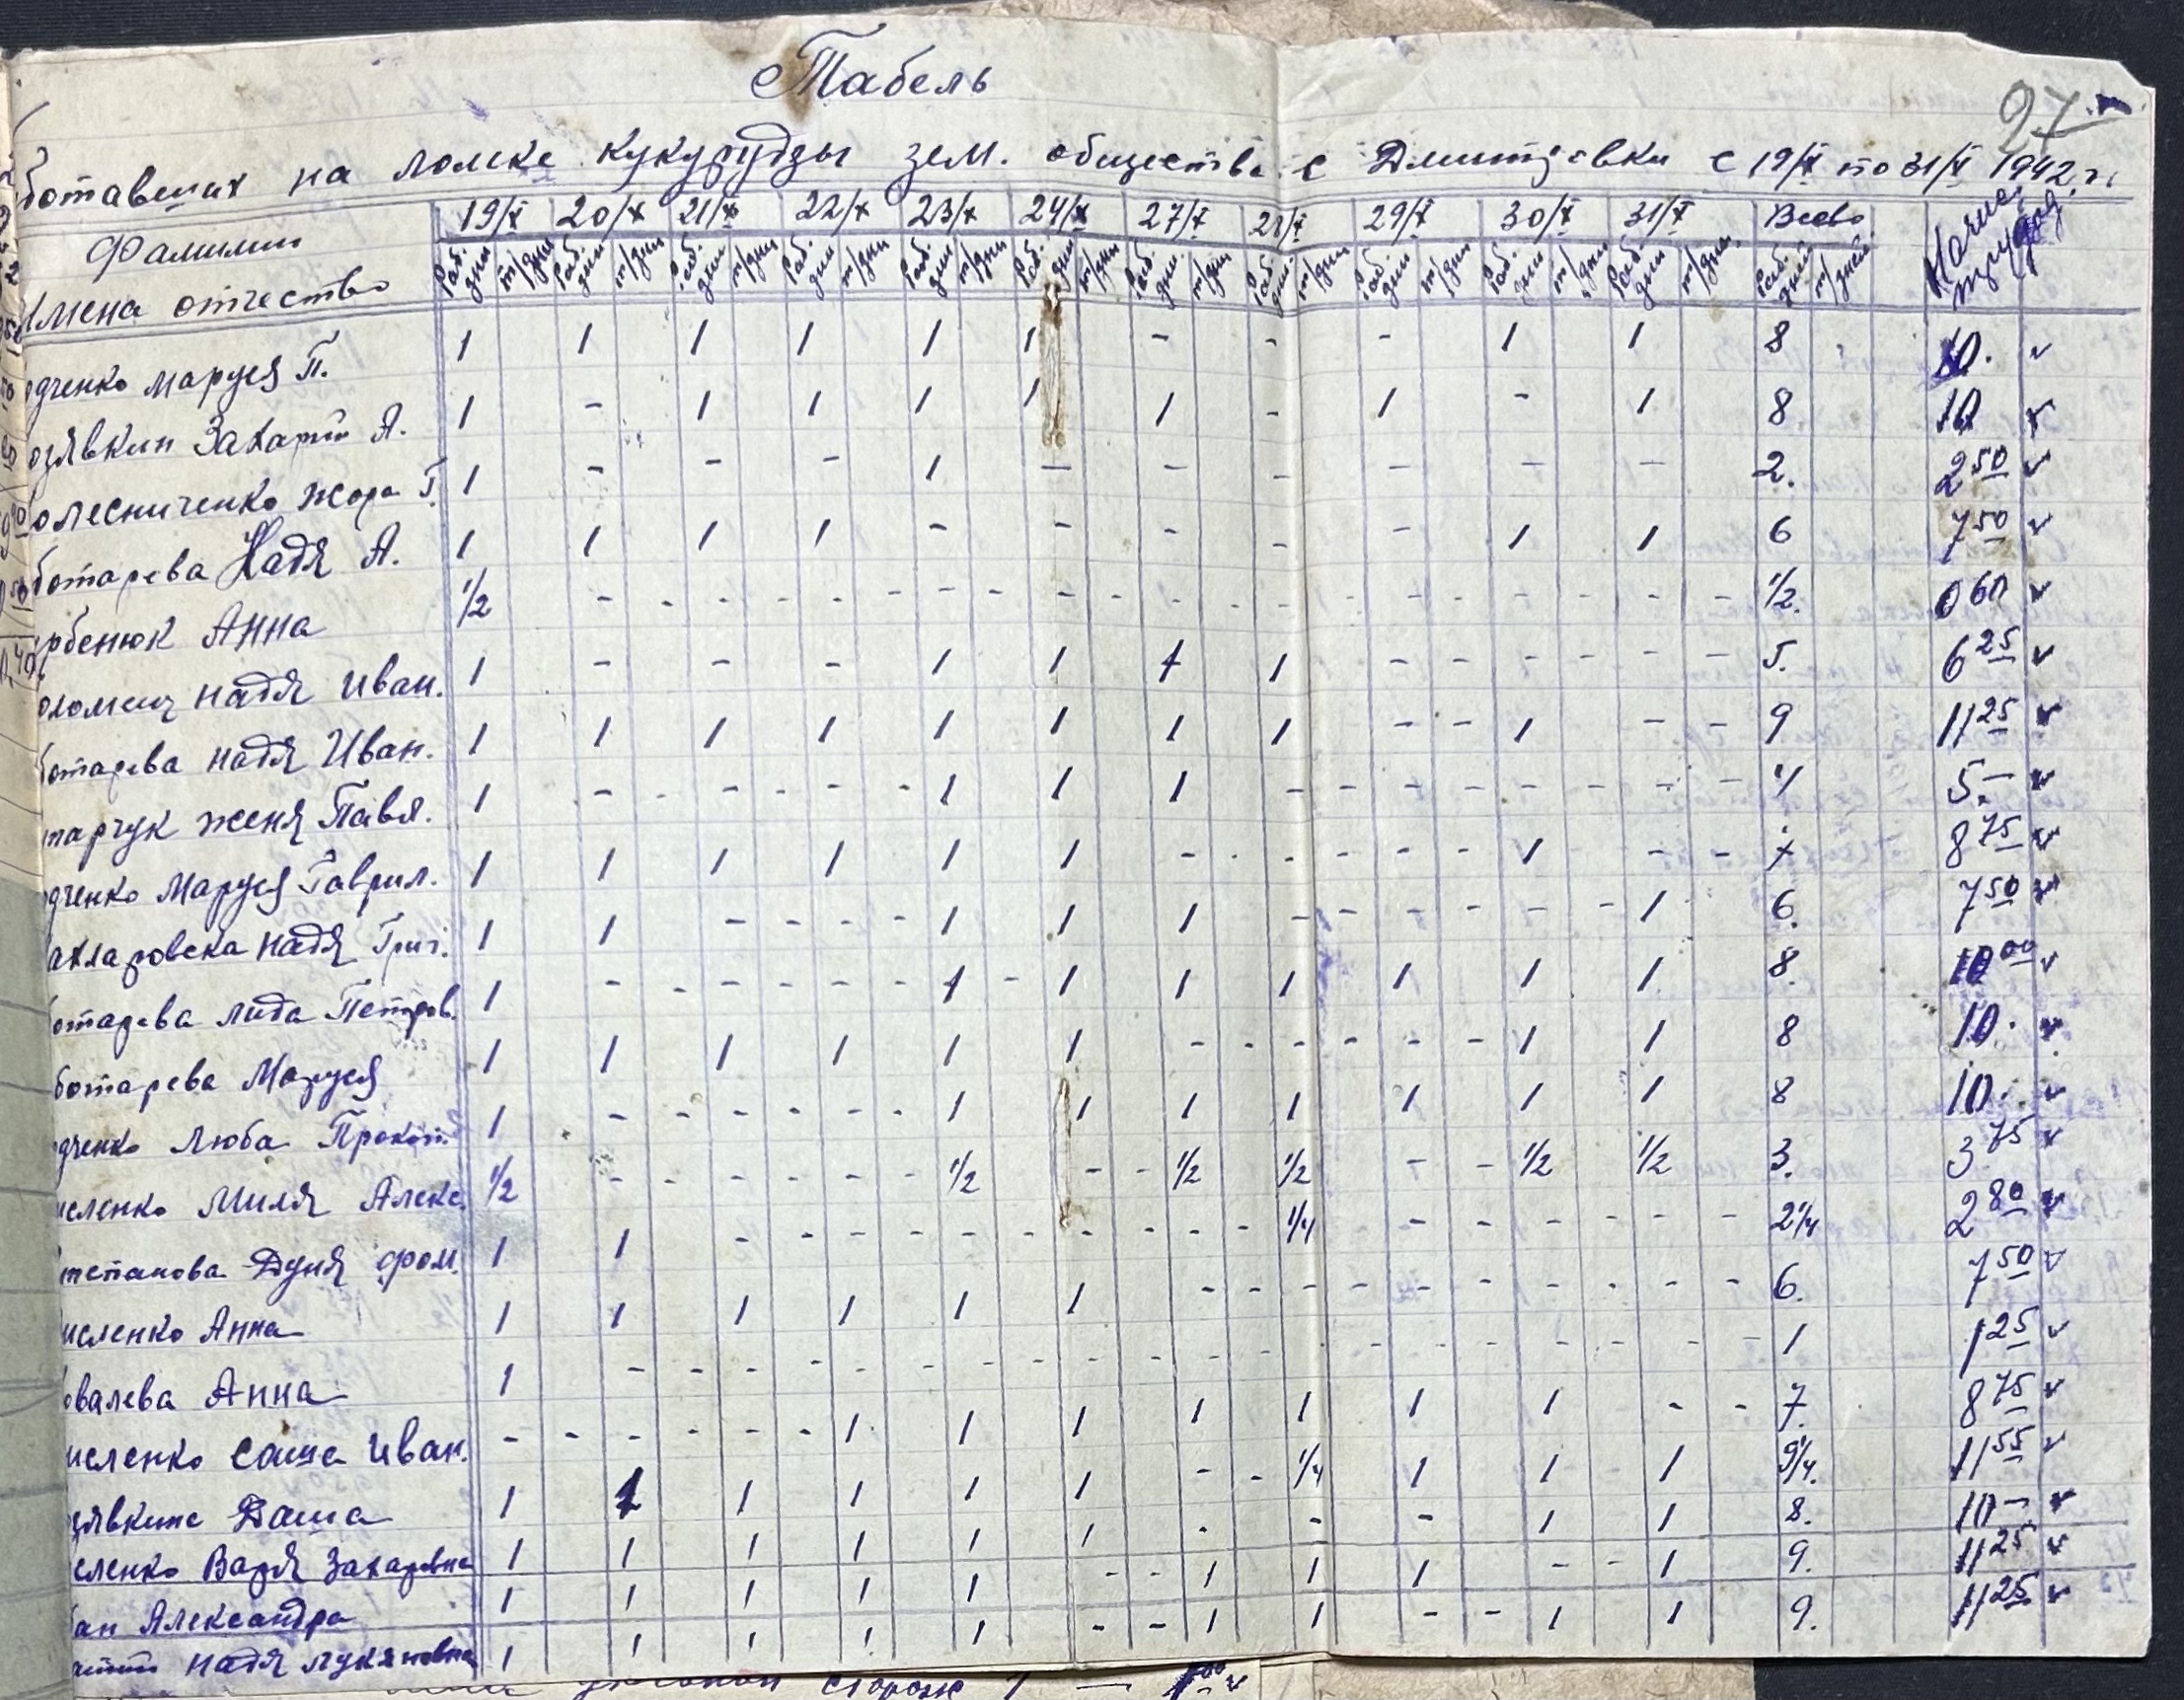 Табель
27
ботавших на ломке кукурудзы зем. общества с Дмитровки с 19/X по 31/X 1942 г.
Фамилии Имена отчество 19/X 20/X 21/X 22/X 23/X 24/X 27/X 28/X 29/X 30/X 31/X Всево Начис. трудод.
Раб. дни т/дни Раб. дни т/дни Раб. дни т/дни Раб. дни т/дни Раб. дни т/дни Раб. дни т/дни Раб. дни т/дни Раб. дни т/дни Раб. дни т/дни Раб. дни т/дни Раб. дни т/дни Раб. дней т/дней
дченко Маруся П. 1 1 1 1 1 1 - - - 1 1 8 10.
озявкин Захарий А. 1 - 1 1 1 1 1 - 1 - 1 8 10
олесниченко Жора Г. 1 - - - 1 - - - - - - 2. 2 50
ботарева Надя А. 1 1 1 1 - - - - - 1 1 6 7 50
рбенюк Анна 1/2 - - - - - - - - - - - - - - - - - - - 1/2. 0 60
оломеич Надя Иван. 1 - - - 1 1 1 1 - - - - - - 5. 6 25
ботарева Надя Иван. 1 1 1 1 1 1 1 1 - - 1 - - 9 11 25
тарчук Женя Павл. 1 - - - - - - 1 1 1 - - - - - - - - 4 5.-
дченко Маруся Гаврил. 1 1 1 1 1 1 - - - - - - 1 - - 7 8 75
ахларовска Надя Григ. 1 1 - - - - 1 1 1 - - - - - - 1 6. 7 50
ботарева Лида Петров. 1 - - - - - - 1 - 1 1 1 1 1 1 8. 10 00
ботарева Маруся 1 1 1 1 1 1 - - - - - - 1 1 8 10.
дченко Люба Прокоп. 1 - - - - - - 1 1 1 1 1 1 1 8 10.
исленко Миля Алекс. 1/2 - - - - - - 1/2 - - 1/2 1/2 - - 1/2 1/2 3. 3 75
тепанова Дуня Фом. 1 1 - - - - - - - - - 1/4 - - - - - - 2 1/4 2 80
исленко Анна 1 1 1 1 1 1 - - - - - - - - - - 6. 7 50
овалева Анна 1 - - - - - - - - - - - - - - - - - - - 1 1 25
исленко Саша Иван. - - - - - - 1 1 1 1 1 1 1 - - 7. 8 75
озявкина Даша 1 1 1 1 1 1 - - 1/4 1 1 1 9 1/4. 11 55
сленко Варя Захаровна 1 1 1 1 1 1 - - - 1 1 8. 10 -
бан Александра 1 1 1 1 1 - - 1 1 1 - - 1 9. 11 25
Надя Лукяновна 1 1 1 1 1 - - 1 1 - - 1 1 9. 11 25
сторож